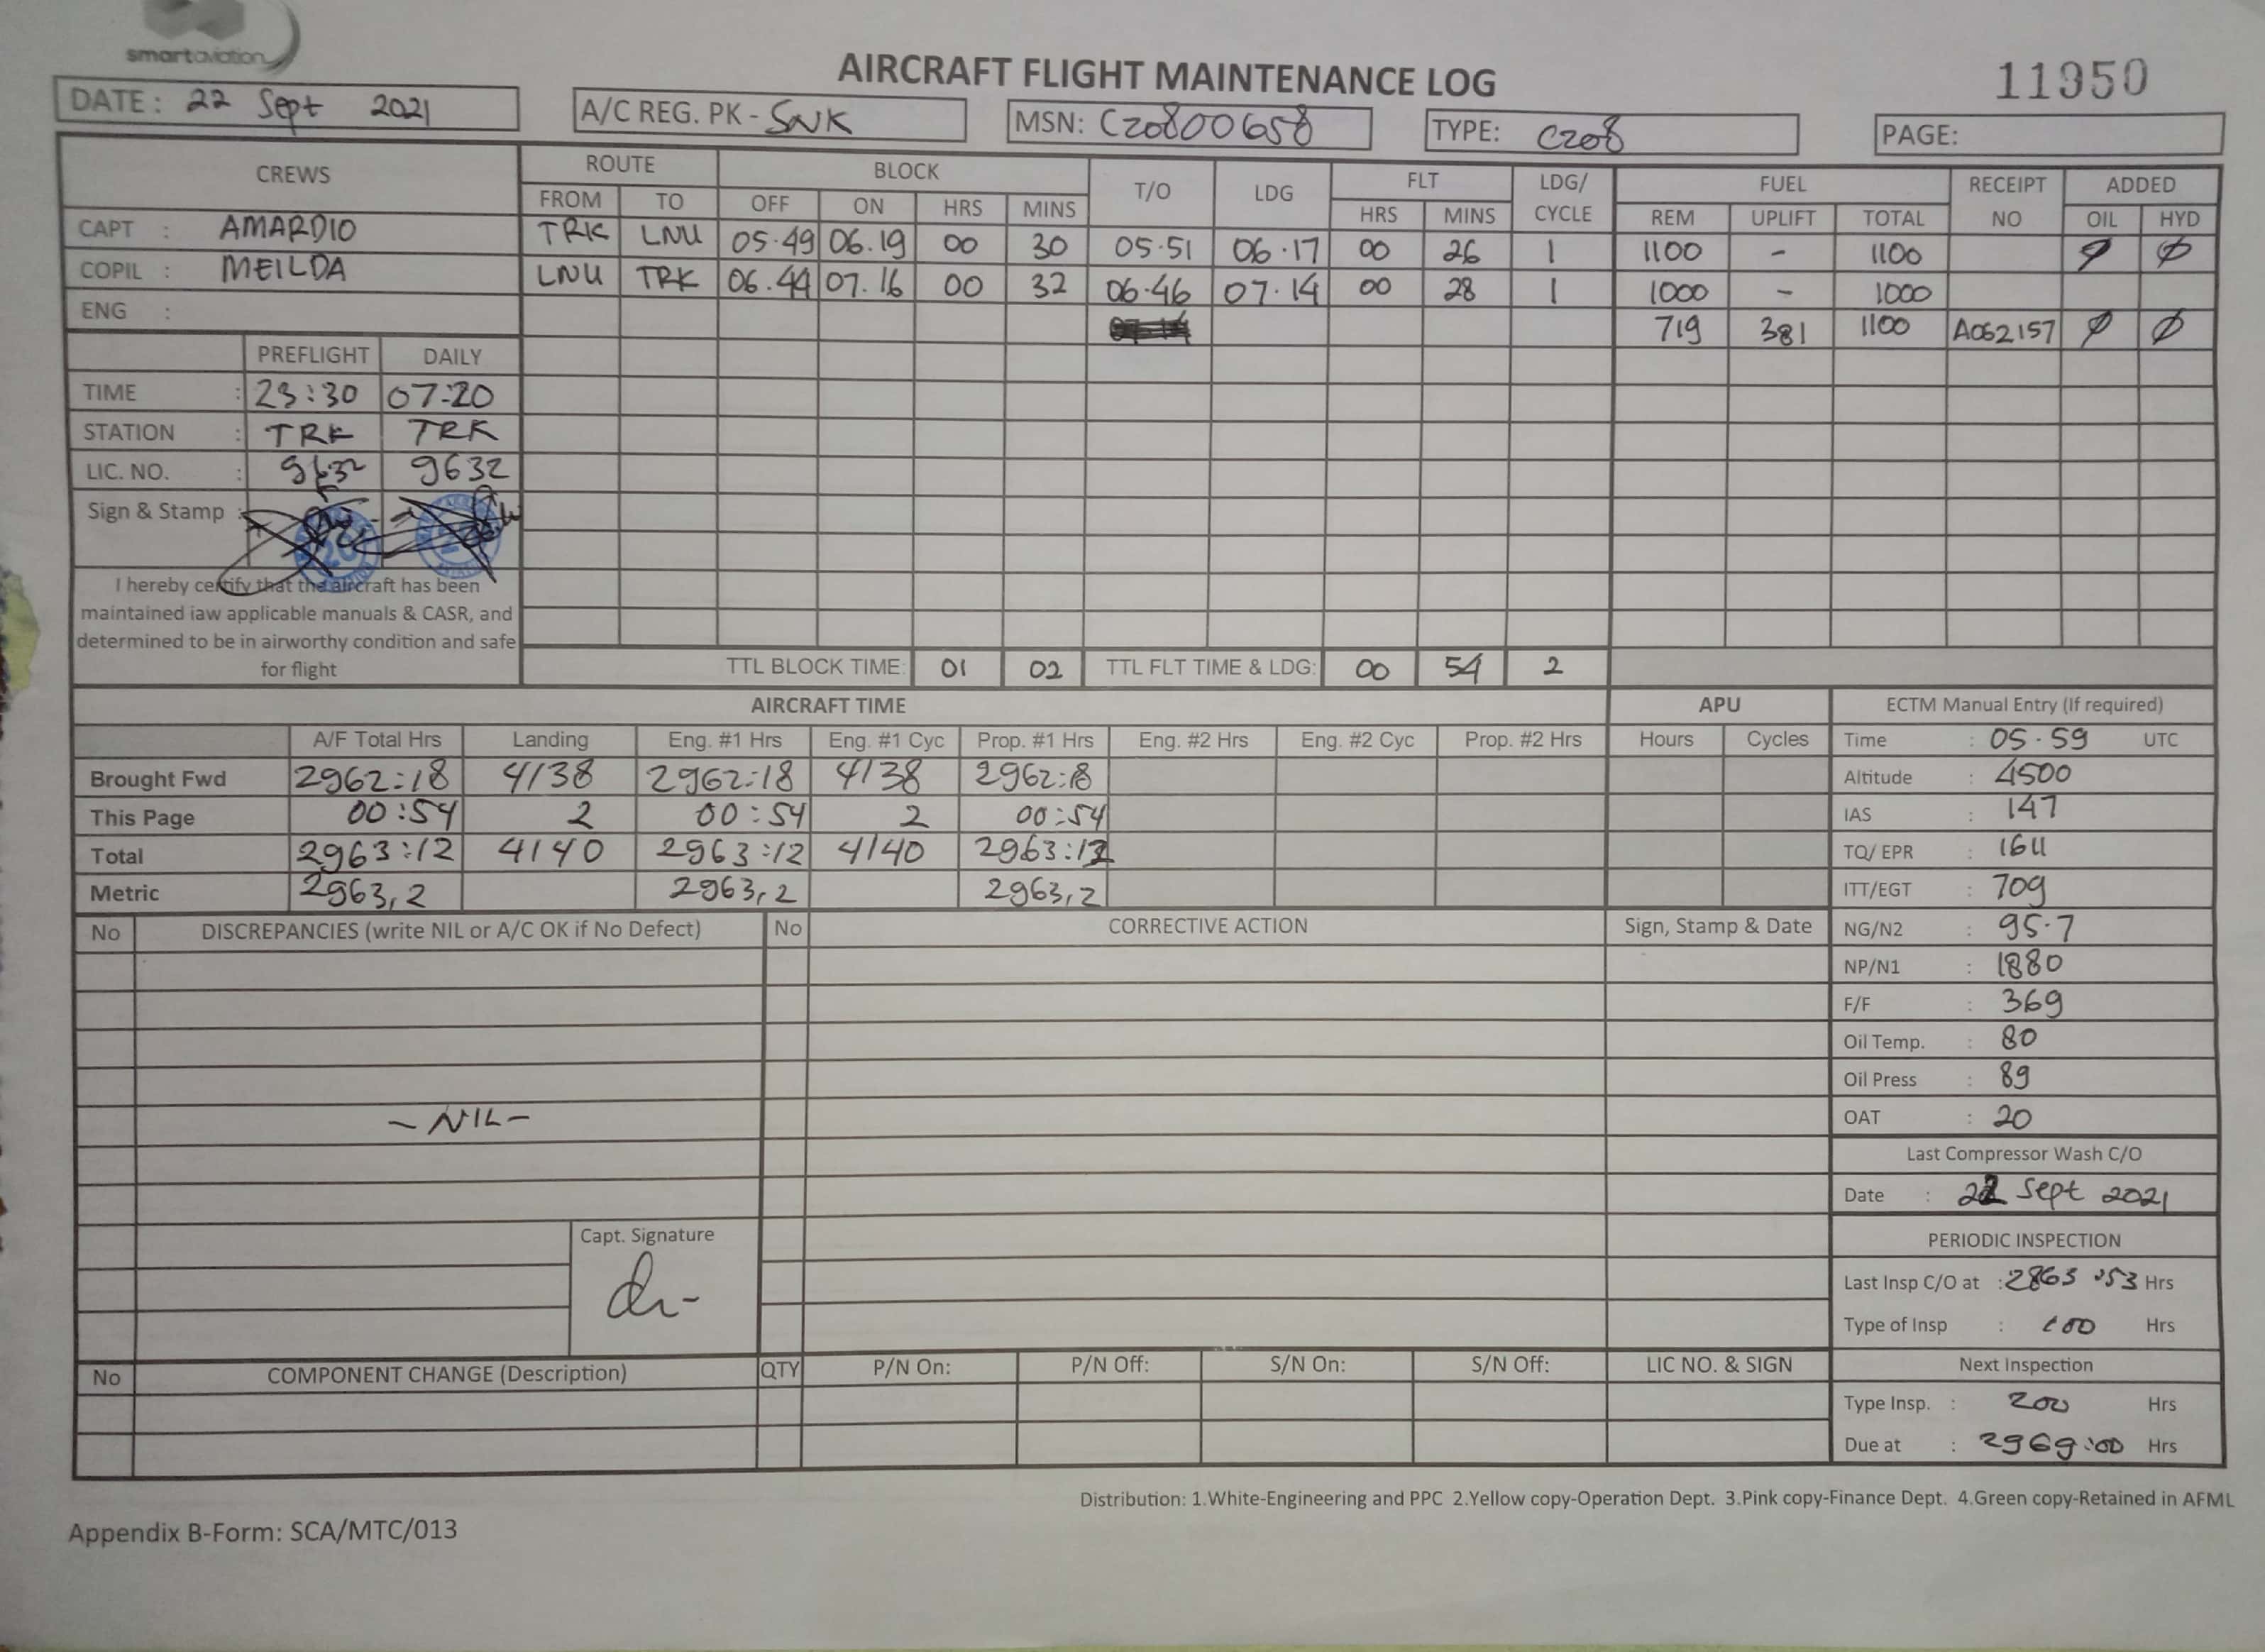 smartaviation
AIRCRAFT FLIGHT MAINTENANCE LOG
11950
DATE: 22 Sept 2021
A/C REG. PK - SNK
MSN: C20800658
TYPE: C208
PAGE:
CREWS ROUTE BLOCK T/O LDG FLT LDG/ CYCLE FUEL RECEIPT NO ADDED
FROM TO OFF ON HRS MINS HRS MINS REM UPLIFT TOTAL OIL HYD
CAPT : AMARDIO TRK LNU 05.49 06.19 00 30 05.51 06.17 00 26 1 1100 - 1100 Ø Ø
COPIL : MEILDA LNU TRK 06.44 07.16 00 32 06.46 07.14 00 28 1 1000 - 1000
ENG : 719 381 1100 A062157 Ø Ø
PREFLIGHT DAILY
TIME : 23:30 07:20
STATION : TRK TRK
LIC. NO. : 9632 9632
Sign & Stamp :
I hereby certify that the aircraft has been
maintained iaw applicable manuals & CASR, and
determined to be in airworthy condition and safe
for flight
TTL BLOCK TIME: 01 02 TTL FLT TIME & LDG: 00 54 2
AIRCRAFT TIME APU
A/F Total Hrs Landing Eng. #1 Hrs Eng. #1 Cyc Prop. #1 Hrs Eng. #2 Hrs Eng. #2 Cyc Prop. #2 Hrs Hours Cycles
Brought Fwd 2962:18 4138 2962:18 4138 2962:18
This Page 00:54 2 00:54 2 00:54
Total 2963:12 4140 2963:12 4140 2963:12
Metric 2963,2 2963,2 2963,2
ECTM Manual Entry (If required)
Time : 05.59 UTC
Altitude : 4500
IAS : 147
TQ/ EPR : 1611
ITT/EGT : 709
NG/N2 : 95.7
NP/N1 : 1880
F/F : 369
Oil Temp. : 80
Oil Press : 89
OAT : 20
Last Compressor Wash C/O
Date : 22 Sept 2021
PERIODIC INSPECTION
Last Insp C/O at : 2863:53 Hrs
Type of Insp : 100 Hrs
Next Inspection
Type Insp. : 200 Hrs
Due at : 2969:00 Hrs
No DISCREPANCIES (write NIL or A/C OK if No Defect) No CORRECTIVE ACTION Sign, Stamp & Date
- NIL -
Capt. Signature
No COMPONENT CHANGE (Description) QTY P/N On: P/N Off: S/N On: S/N Off: LIC NO. & SIGN
Distribution: 1.White-Engineering and PPC 2.Yellow copy-Operation Dept. 3.Pink copy-Finance Dept. 4.Green copy-Retained in AFML
Appendix B-Form: SCA/MTC/013